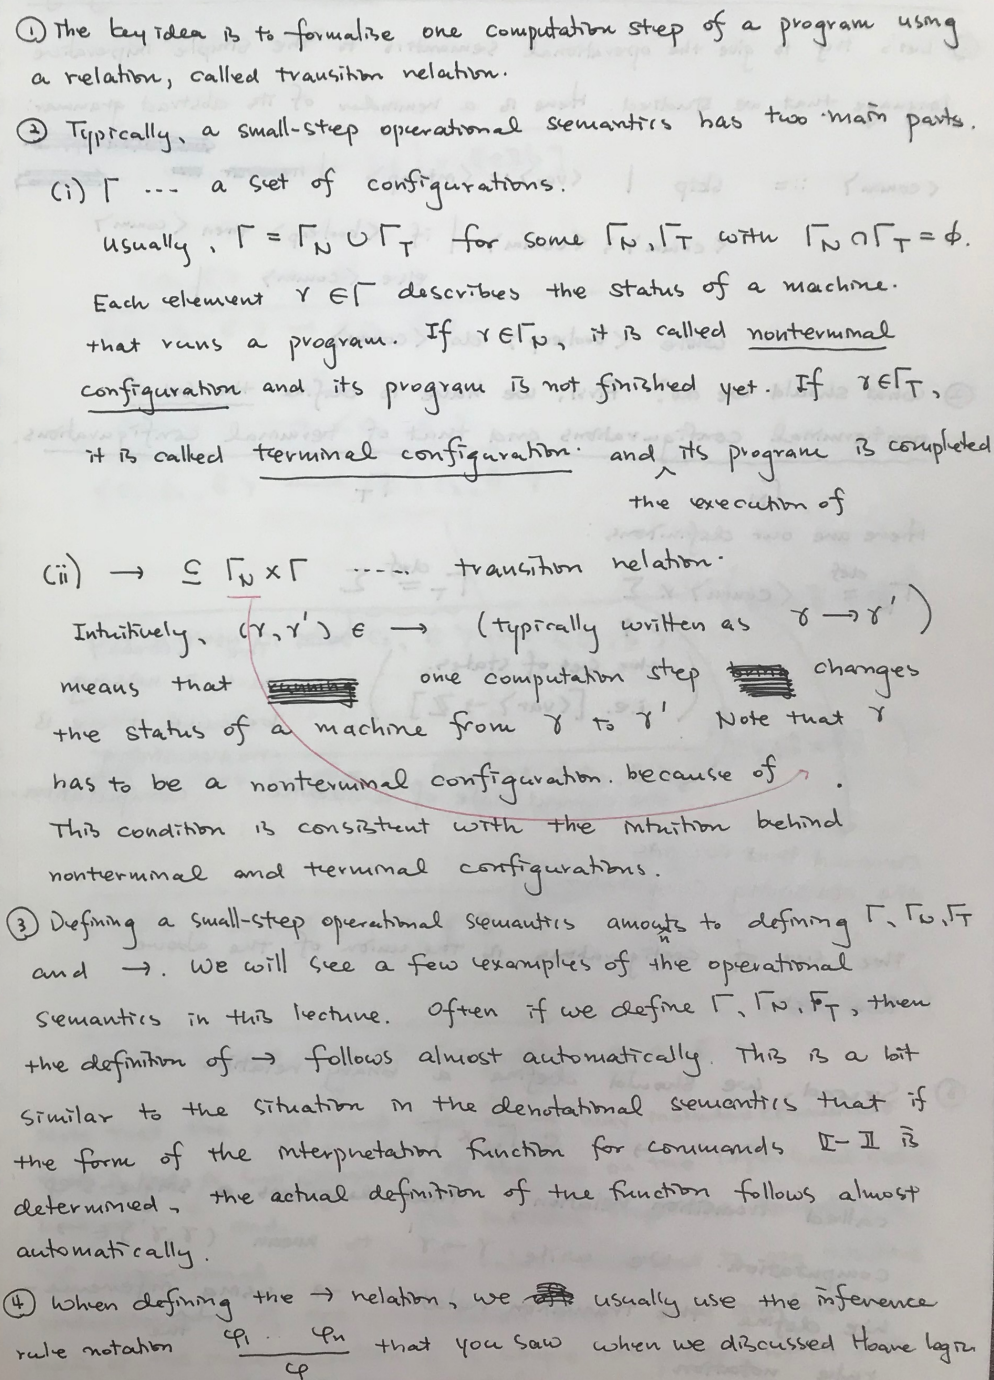 ① The key idea is to formalise one computation step of a program using
a relation, called transition relation.
② Typically, a small-step operational semantics has two main parts.
(i) Γ ... a set of configurations.
Usually, Γ = Γ_N ∪ Γ_T for some Γ_N, Γ_T with Γ_N ∩ Γ_T = ∅.
Each element γ ∈ Γ describes the status of a machine.
that runs a program. If γ ∈ Γ_N, it is called nonterminal
configuration and its program is not finished yet. If γ ∈ Γ_T,
it is called terminal configuration. and ^ its program is completed
the execution of
(ii) → ⊆ Γ_N × Γ ...... transition relation.
Intuitively, (γ, γ') ∈ → (typically written as γ → γ')
means that one computation step changes
the status of a machine from γ to γ' Note that γ
has to be a nonterminal configuration. because of .
This condition is consistent with the intuition behind
nonterminal and terminal configurations.
③ Defining a small-step operational semantics amounts to defining Γ, Γ_N, Γ_T
and →. We will see a few examples of the operational
semantics in this lecture. Often if we define Γ, Γ_N, Γ_T, then
the definition of → follows almost automatically. This is a bit
similar to the situation in the denotational semantics that if
the form of the interpretation function for commands ⟦-⟧ is
determined, the actual definition of the function follows almost
automatically.
④ When defining the → relation, we usually use the inference
rule notation φ₁ ... φₙ / φ that you saw when we discussed Hoare logic